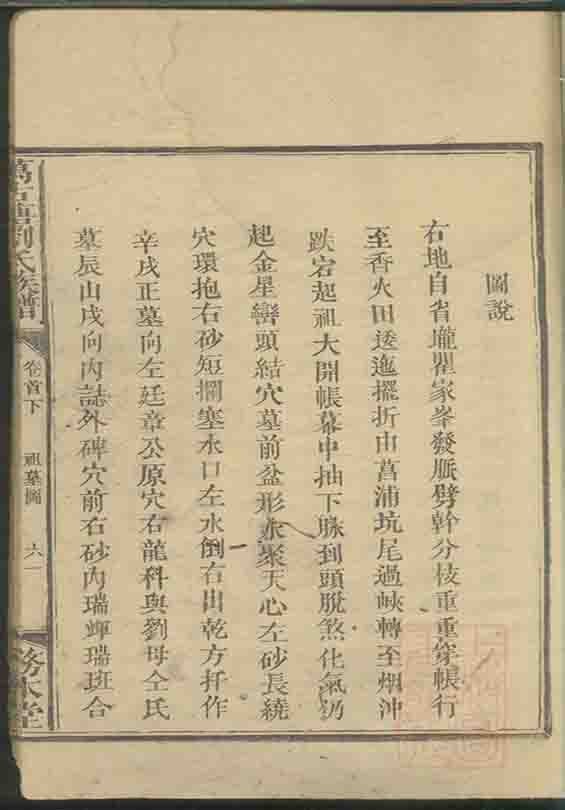 圖說
右地自省壠瞿家峯發脈劈幹分枝重重穿帳行
至香火田逶迤擺折由菖浦坑尾過峽轉至烟沖
跌宕起祖大開帳幕中抽下脉到頭脫煞化氣仍
起金星巒頭結穴墓前盆形水聚天心左砂長繞
穴環抱右砂短攔塞水口左水倒右出乾方扦作
辛戌正墓向左廷章公原穴右龍科與劉母仝氏
墓辰山戌向內誌外碑穴前右砂內瑞輝瑞班合
劉氏族譜
卷首下
祖墓圖
六一
務本堂